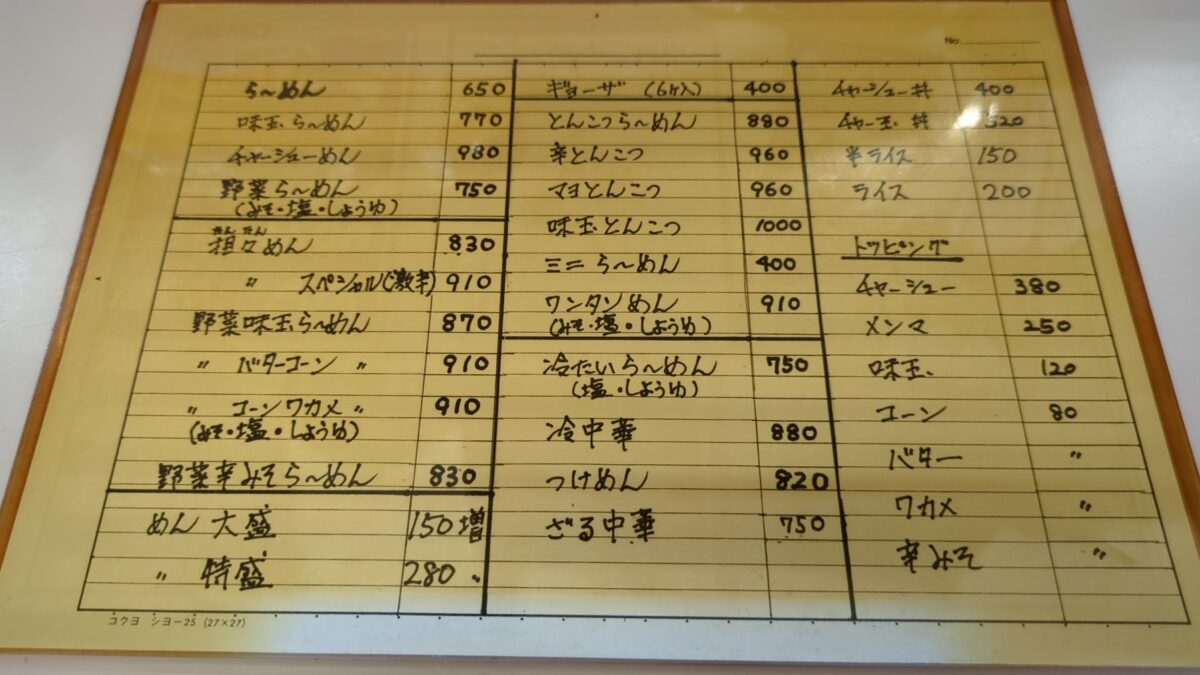 No.
らーめん 650
味玉らーめん 770
チャーシューめん 980
野菜らーめん 750
(みそ・塩・しょうゆ)
たんたん
担々めん 830
〃 スペシャル(激辛) 910
野菜味玉らーめん 870
〃 バターコーン 〃 910
〃 コーンワカメ 〃 910
(みそ・塩・しょうゆ)
野菜辛みそらーめん 830
めん 大盛 150増
〃 特盛 280 〃
ギョーザ (6ヶ入) 400
とんこつらーめん 880
辛とんこつ 960
マヨとんこつ 960
味玉とんこつ 1000
ミニらーめん 400
ワンタンめん 910
(みそ・塩・しょうゆ)
冷たいらーめん 750
(塩・しょうゆ)
冷中華 880
つけめん 820
ざる中華 750
チャーシュー丼 400
チャー玉丼 520
半ライス 150
ライス 200
トッピング
チャーシュー 380
メンマ 250
味玉 120
コーン 80
バター 〃
ワカメ 〃
辛みそ 〃
コクヨ シヨー25 (27×27)